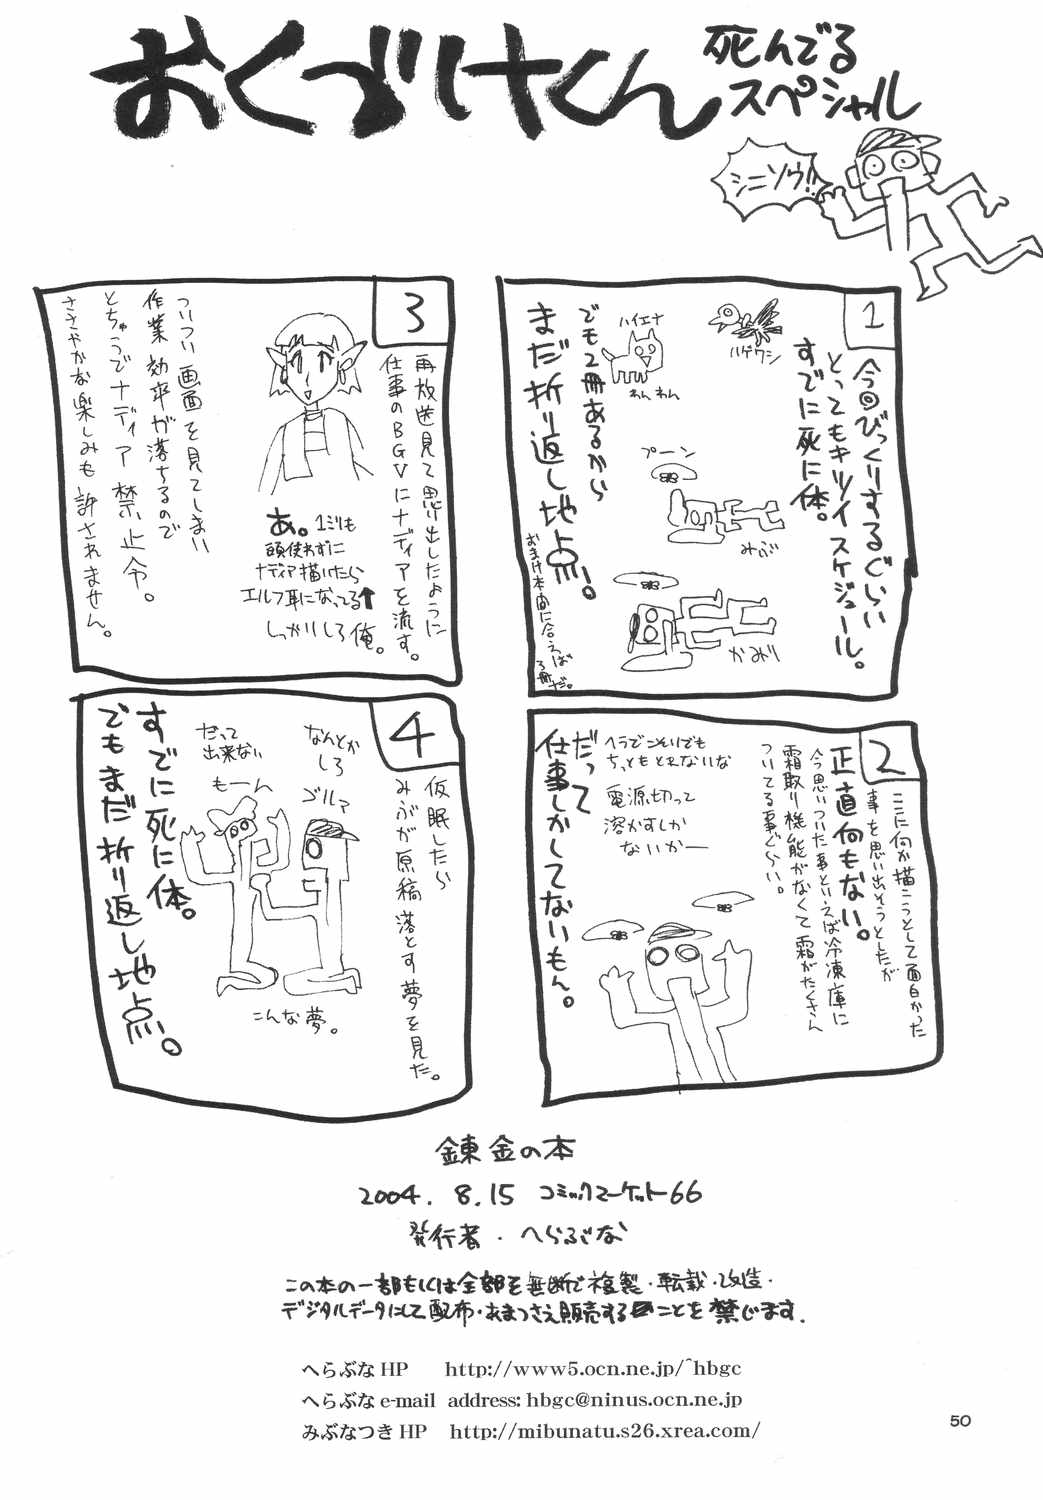 おくづけくん
死んでる
スペシャル
シニソウ!!
1
今回びっくりするぐらい
とってもキツイスケジュール。
すでに死に体。
ハゲワシ
ハイエナ
わんわん
プーン
みぶ
かみり
でも2冊あるから
まだ折り返し地点!
おまけ本間に合えば
3冊だ。
2
ここに何か描こうとして面白かった
事を思い出そうとしたが
正直何もない。
今思いついた事といえば冷凍庫に
霜取り機能がなくて霜がたくさん
ついてる事ぐらい。
ヘラでこそいでも
ちっともとれないな
電源切って
溶かすしか
ないかー
だって
仕事しかしてないもん。
3
再放送見て思い出したように
仕事のBGVにナディアを流す。
あ。1ミリも
頭使わずに
ナディア描いたら
エルフ耳になってる↑
しっかりしろ俺。
ついつい画面を見てしまい
作業効率が落ちるので
とちゅうでナディア禁止令。
ささやかな楽しみも許されません。
4
仮眠したら
みぶが原稿落とす夢を見た。
なんとか
しろ
ゴルァ
だって
出来ない
もーん
こんな夢。
すでに死に体。
でもまだ折り返し地点!。
錬金の本
2004. 8.15 コミックマーケット66
発行者・へらぶな
この本の一部もしくは全部を無断で複製・転載・改造・
デジタルデータにして配布・あまつさえ販売することを禁じます.
へらぶなHP http://www5.ocn.ne.jp/~hbgc
へらぶなe-mail address: hbgc@ninus.ocn.ne.jp
みぶなつきHP http://mibunatu.s26.xrea.com/
50